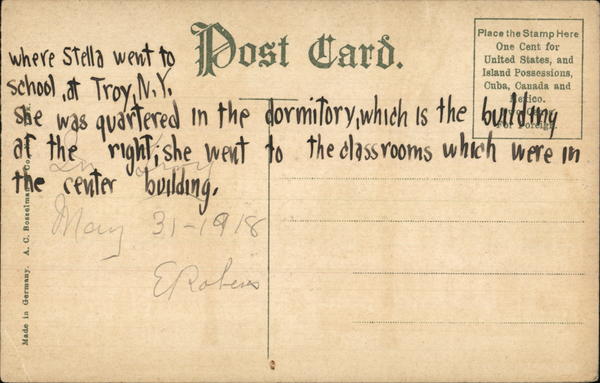 Post Card.
Place the Stamp Here
One Cent for
United States, and
Island Possessions,
Cuba, Canada and
Mexico.
For Foreign.
where Stella went to
school, at Troy, N.Y.
She was quartered in the dormitory, which is the building
at the right; she went to the classrooms which were in
the center building.
May 31-1918
E Robens
Made in Germany. A. C. Bosselman & Co.